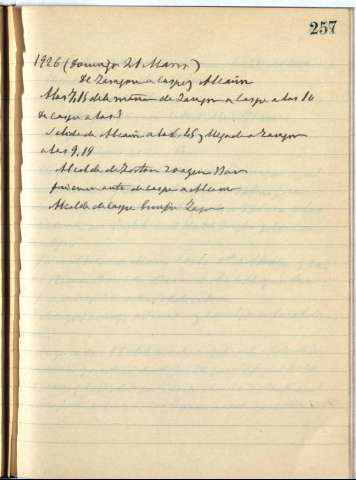 257
1926 (Domingo 21 Marzo)
De Zaragoza a Caspe y Alcañiz
A las 7,15 de la mañana de Zaragoza a Caspe a las 10
de Caspe a las 3
Salida de Alcañiz a las 6,45 y llegada a Zaragoza
a las 9,10
Alcalde de Joaquin
de Caspe a Alcañiz
Alcalde de Caspe